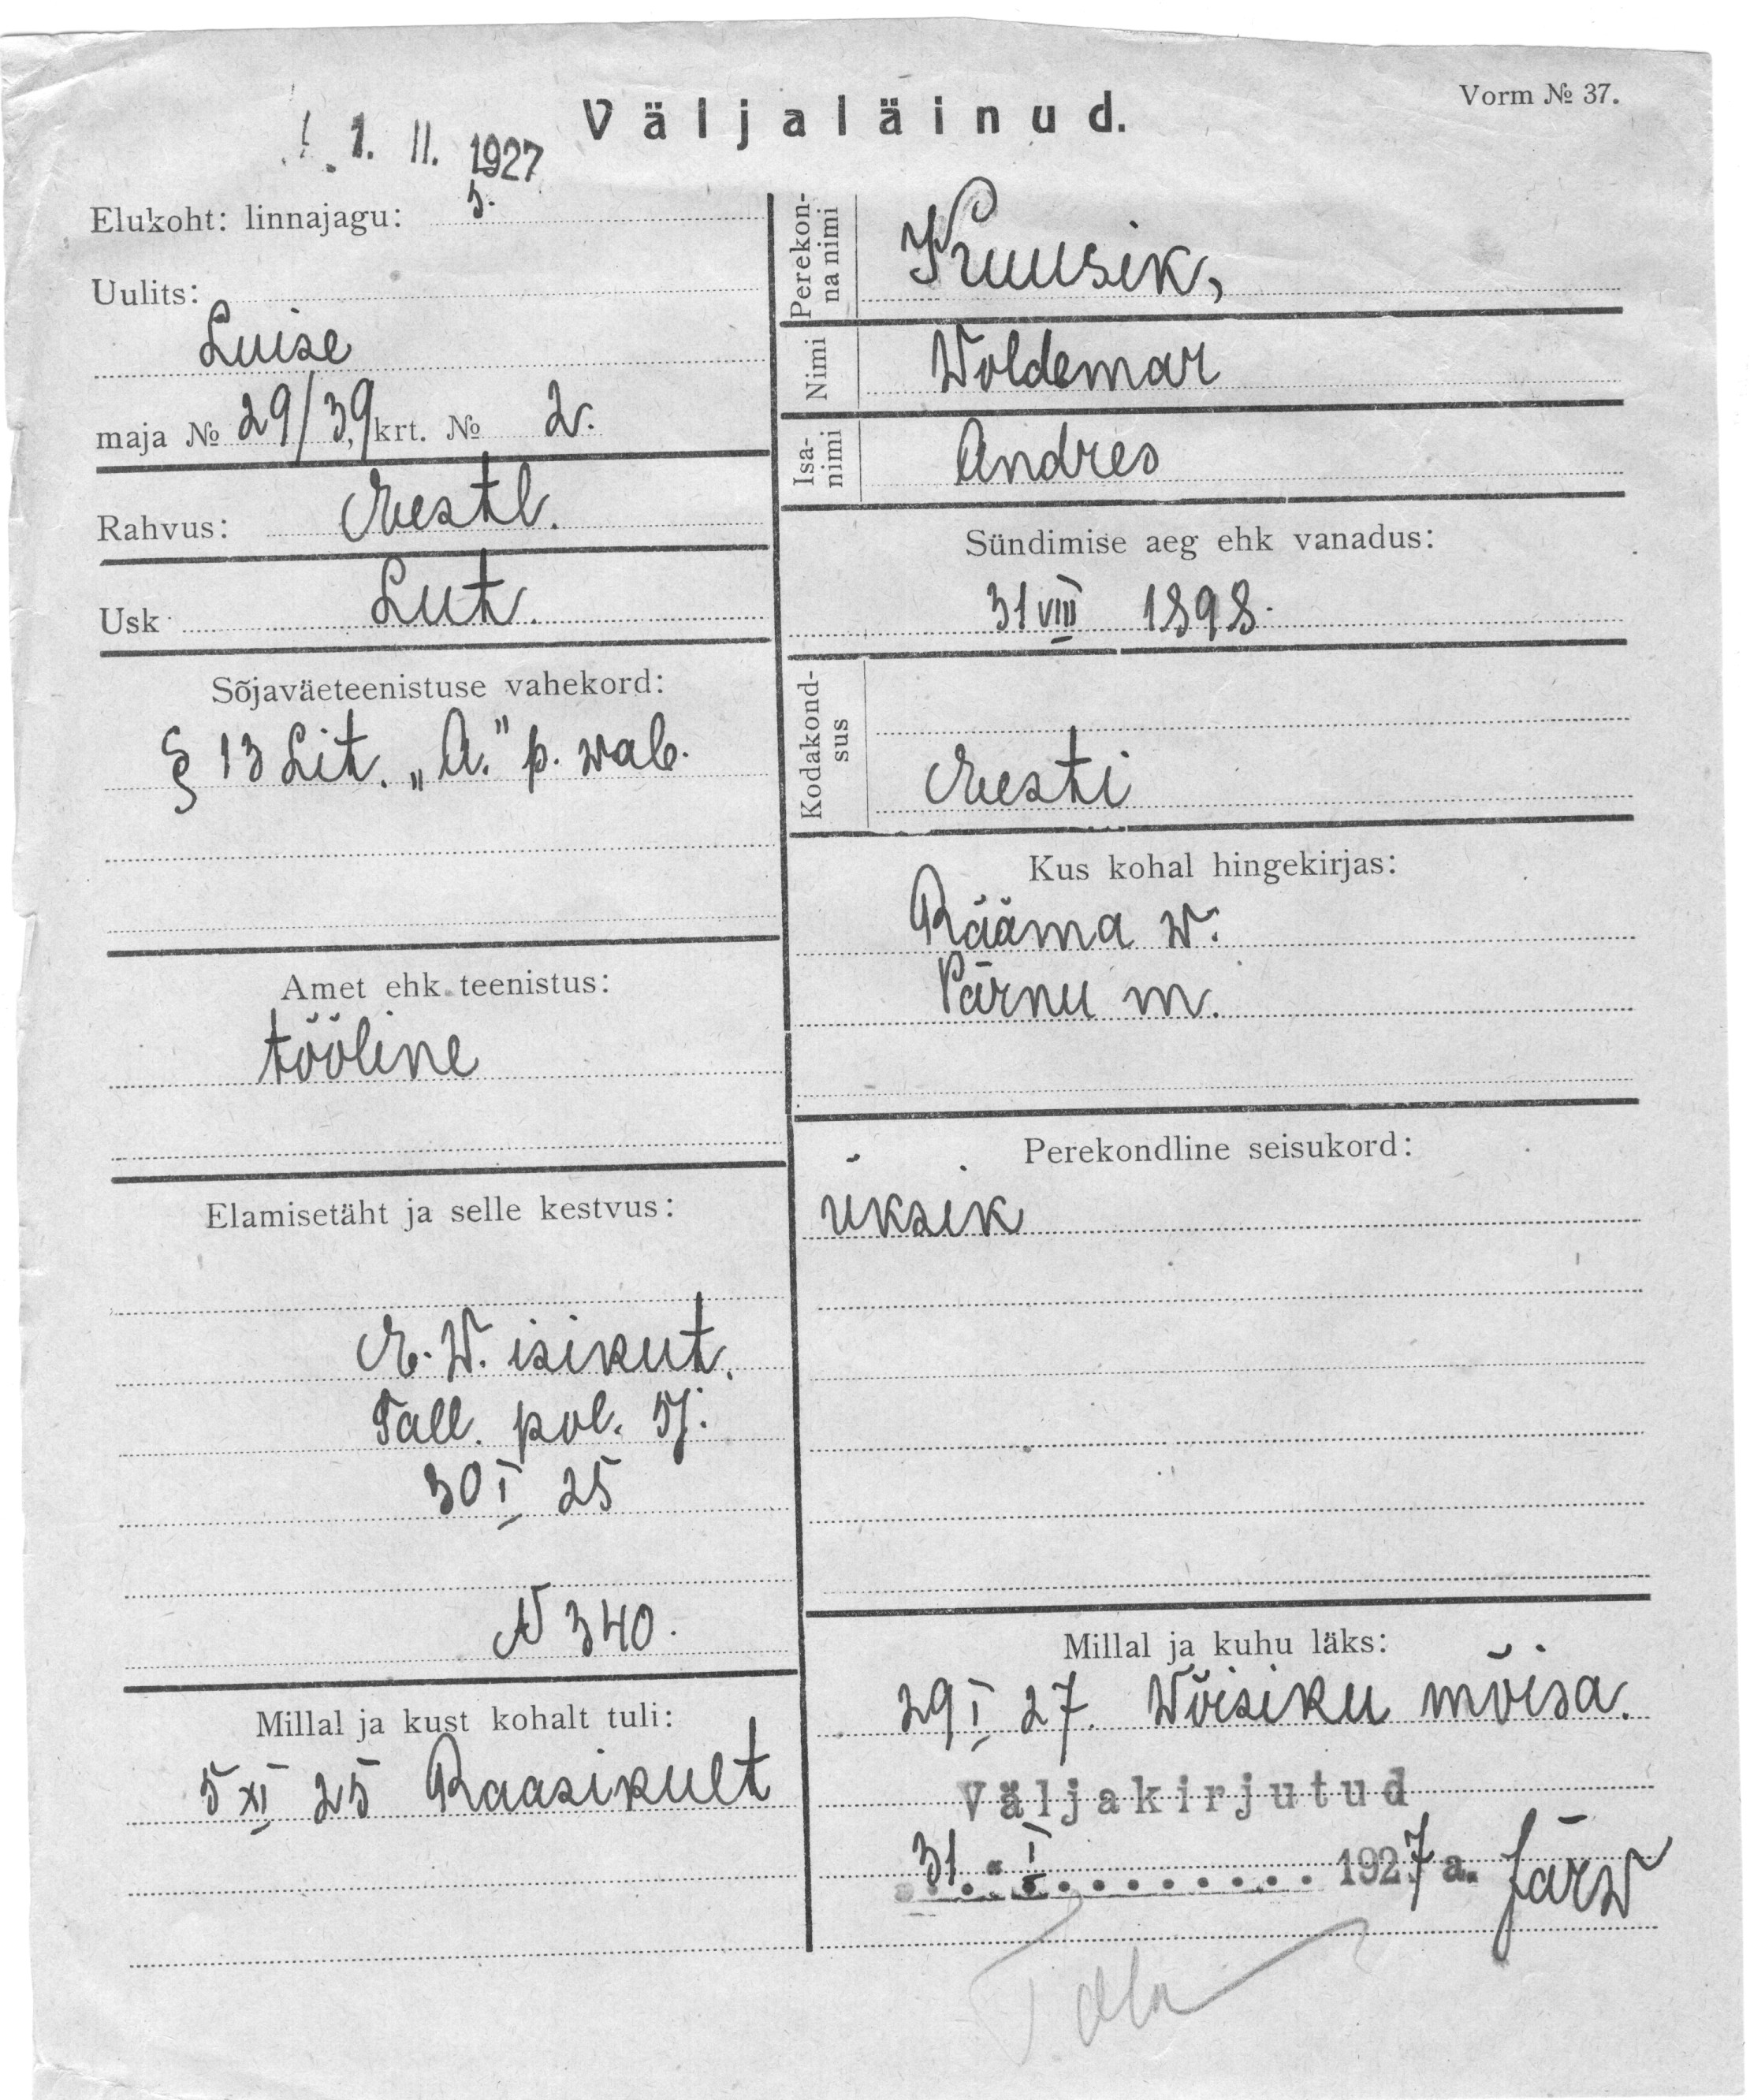 Vorm № 37.
Väljaläinud.
1. II. 1927
Elukoht: linnajagu: 5.
Uulits:
Luise
maja № 29/39, krt. № 2.
Rahvus: Eestl.
Usk Lut.
Sõjaväeteenistuse vahekord:
§ 13 Lit. „A." p. wab.
Amet ehk teenistus:
tööline
Elamisetäht ja selle kestvus:
E. W. isikut.
Tall. pol. 5j.
30 I 25
N 340.
Millal ja kust kohalt tuli:
5 XI 25 Raasikult
Perekonna nimi
Kruusik,
Nimi Woldemar
Isanimi Andres
Sündimise aeg ehk vanadus:
31 VIII 1898.
Kodakondsus
Eesti
Kus kohal hingekirjas:
Rääma w.
Pärnu m.
Perekondline seisukord:
üksik
Millal ja kuhu läks:
29 I 27. Wõisiku mõisa.
Väljakirjutud
31. I 1927 a. Järw